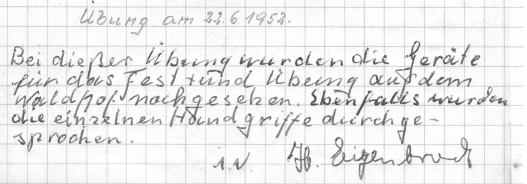 Übung am 22.6.1952.
Bei dießer Übung wurden die Geräte
für das Fest und Übung auf dem
Waldhof nachgesehen. Ebenfalls wurden
die einzelnen Handgriffe durchge-
sprochen.
i.V. Hb. Eigenbrodt